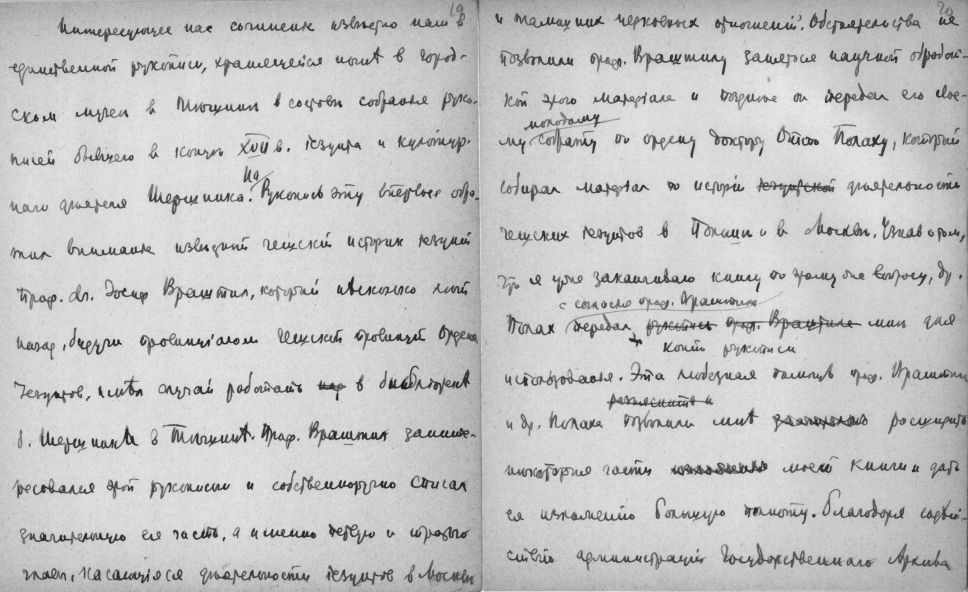 19
Интересующее нас сочинение известно нам в
единственной рукописи, хранящейся нынѣ в город-
ском музеѣ в Тѣшинѣ в составѣ собранія руко-
писей бывшего в концѣ XVIII в. іезуита и культур-
наго дѣятеля Шершника. На Рукопись эту впервые обра-
тил вниманіе извѣстный чешскій историк іезуит
Проф. др. Іосиф Врацтил, который нѣсколько лѣт
назад, будучи провинціалом Чешской провинціи Ордена
Іезуитов, имѣл случай работать в библіотекѣ
б. Шершника в Тѣшинѣ. Проф. Врацтил заинте-
ресовался этой рукописью и собственноручно списал
значительную ея часть, а именно первую и вторую
главы, касающіяся дѣятельности іезуитов в Москвѣ
20
и тамошних церковных отношеній. Обстоятельства не
позволили проф. Врацтилу заняться научной обработ-
кой этого матеріала и позднѣе он передал его свое-
молодому
му собрату по ордену доктору Отто Полаху, который
собирал матеріал по исторіи іезуитской дѣятельности
чешских іезуитов в Польшѣ и в Москвѣ. Узнав о том,
что я уже заканчиваю книгу по этому же вопросу, др.
с согласія проф. Врацтила
Полах передал рукопись проф. Врацтила мнѣ для
копію рукописи
использованія. Эта любезная помощь проф. Врацтила
разъяснить и
и др. Полаха позволили мнѣ расширить
нѣкоторыя части моей книги и дать
ея изложенію большую полноту. Благодаря содѣй-
ствію администраціи Государственнаго Архива